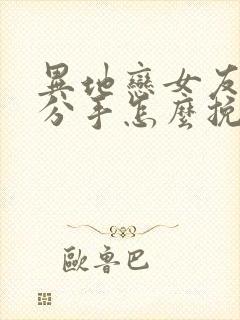 異地戀女友
分手怎麼挽
歐魯巴